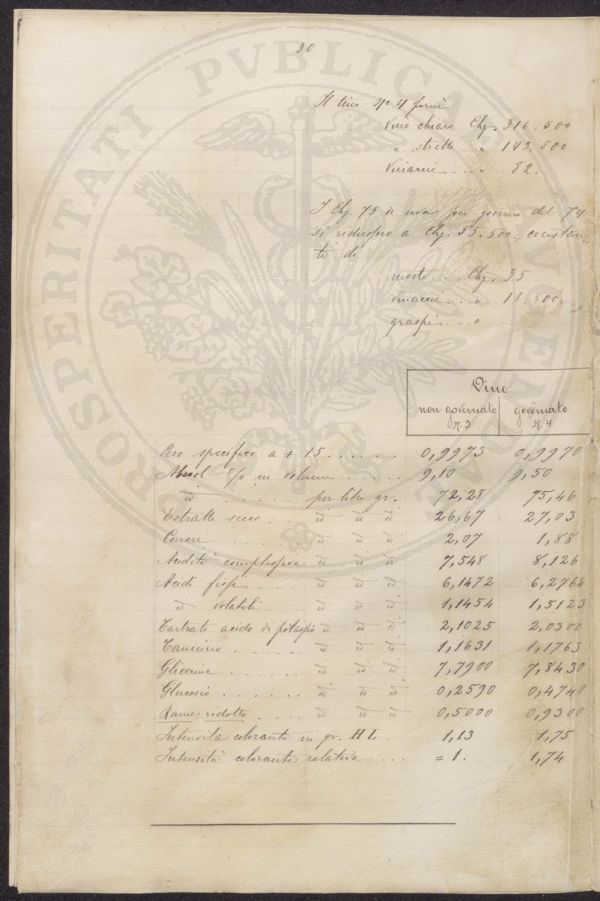 30
Il tino Nº 4 fornì
Vino chiaro Chg. 316.500
" stretto " 143.500
Vinacce . . . " 82.
I Chg. 75 di uva per governo del 74
si ridussero a Chg. 55.500, constan-
ti di
mosto . . Chg. 35
Vinacce . . . " 11.500
graspi . . . "
Vino
non governato governato
N. 3 N. 4
Peso specifico a + 15 . . . . . . 0,9973 0,9970
Alcool % in volume . . . . . 9,10 9,50
id . . . . per litro gr. 72,28 75,46
Estratto secco . . id id id 26,67 27,03
Cenere . . . . id id id 2,07 1,88
Acidità complessiva id id id 7,548 8,126
Acidi fissi . . id id id 6,1472 6,2764
id volatili id id id 1,1454 1,5123
Tartrato acido di potassio id id id 2,1025 2,0300
Tannino . . . . . id id id 1,1631 1,1763
Glicerina . . . . . id id id 7,7900 7,8430
Glucosio . . . . . id id id 0,2590 0,4740
Rame ridotto . . . . id id id 0,5000 0,9300
Intensità colorante in gr. HL . 1,13 1,75
Intensità colorante relativa . . . . = 1. 1,74
PROSPERITATI PVBLICAE AVGENDAE